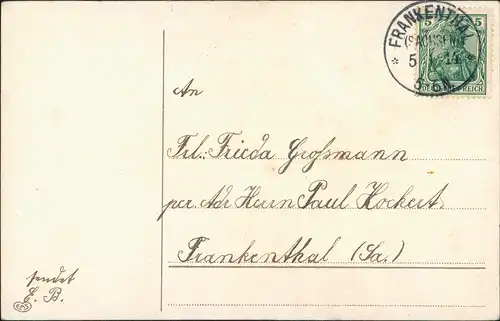 FRANKENTHAL
(SACHSEN)
5 14
5-6N
5 5
DEUTSCHES REICH
An
Frl. Frieda Großmann
per Adr Herrn Paul Hockert.
Frankenthal (Sa.)
sendet
E. B.